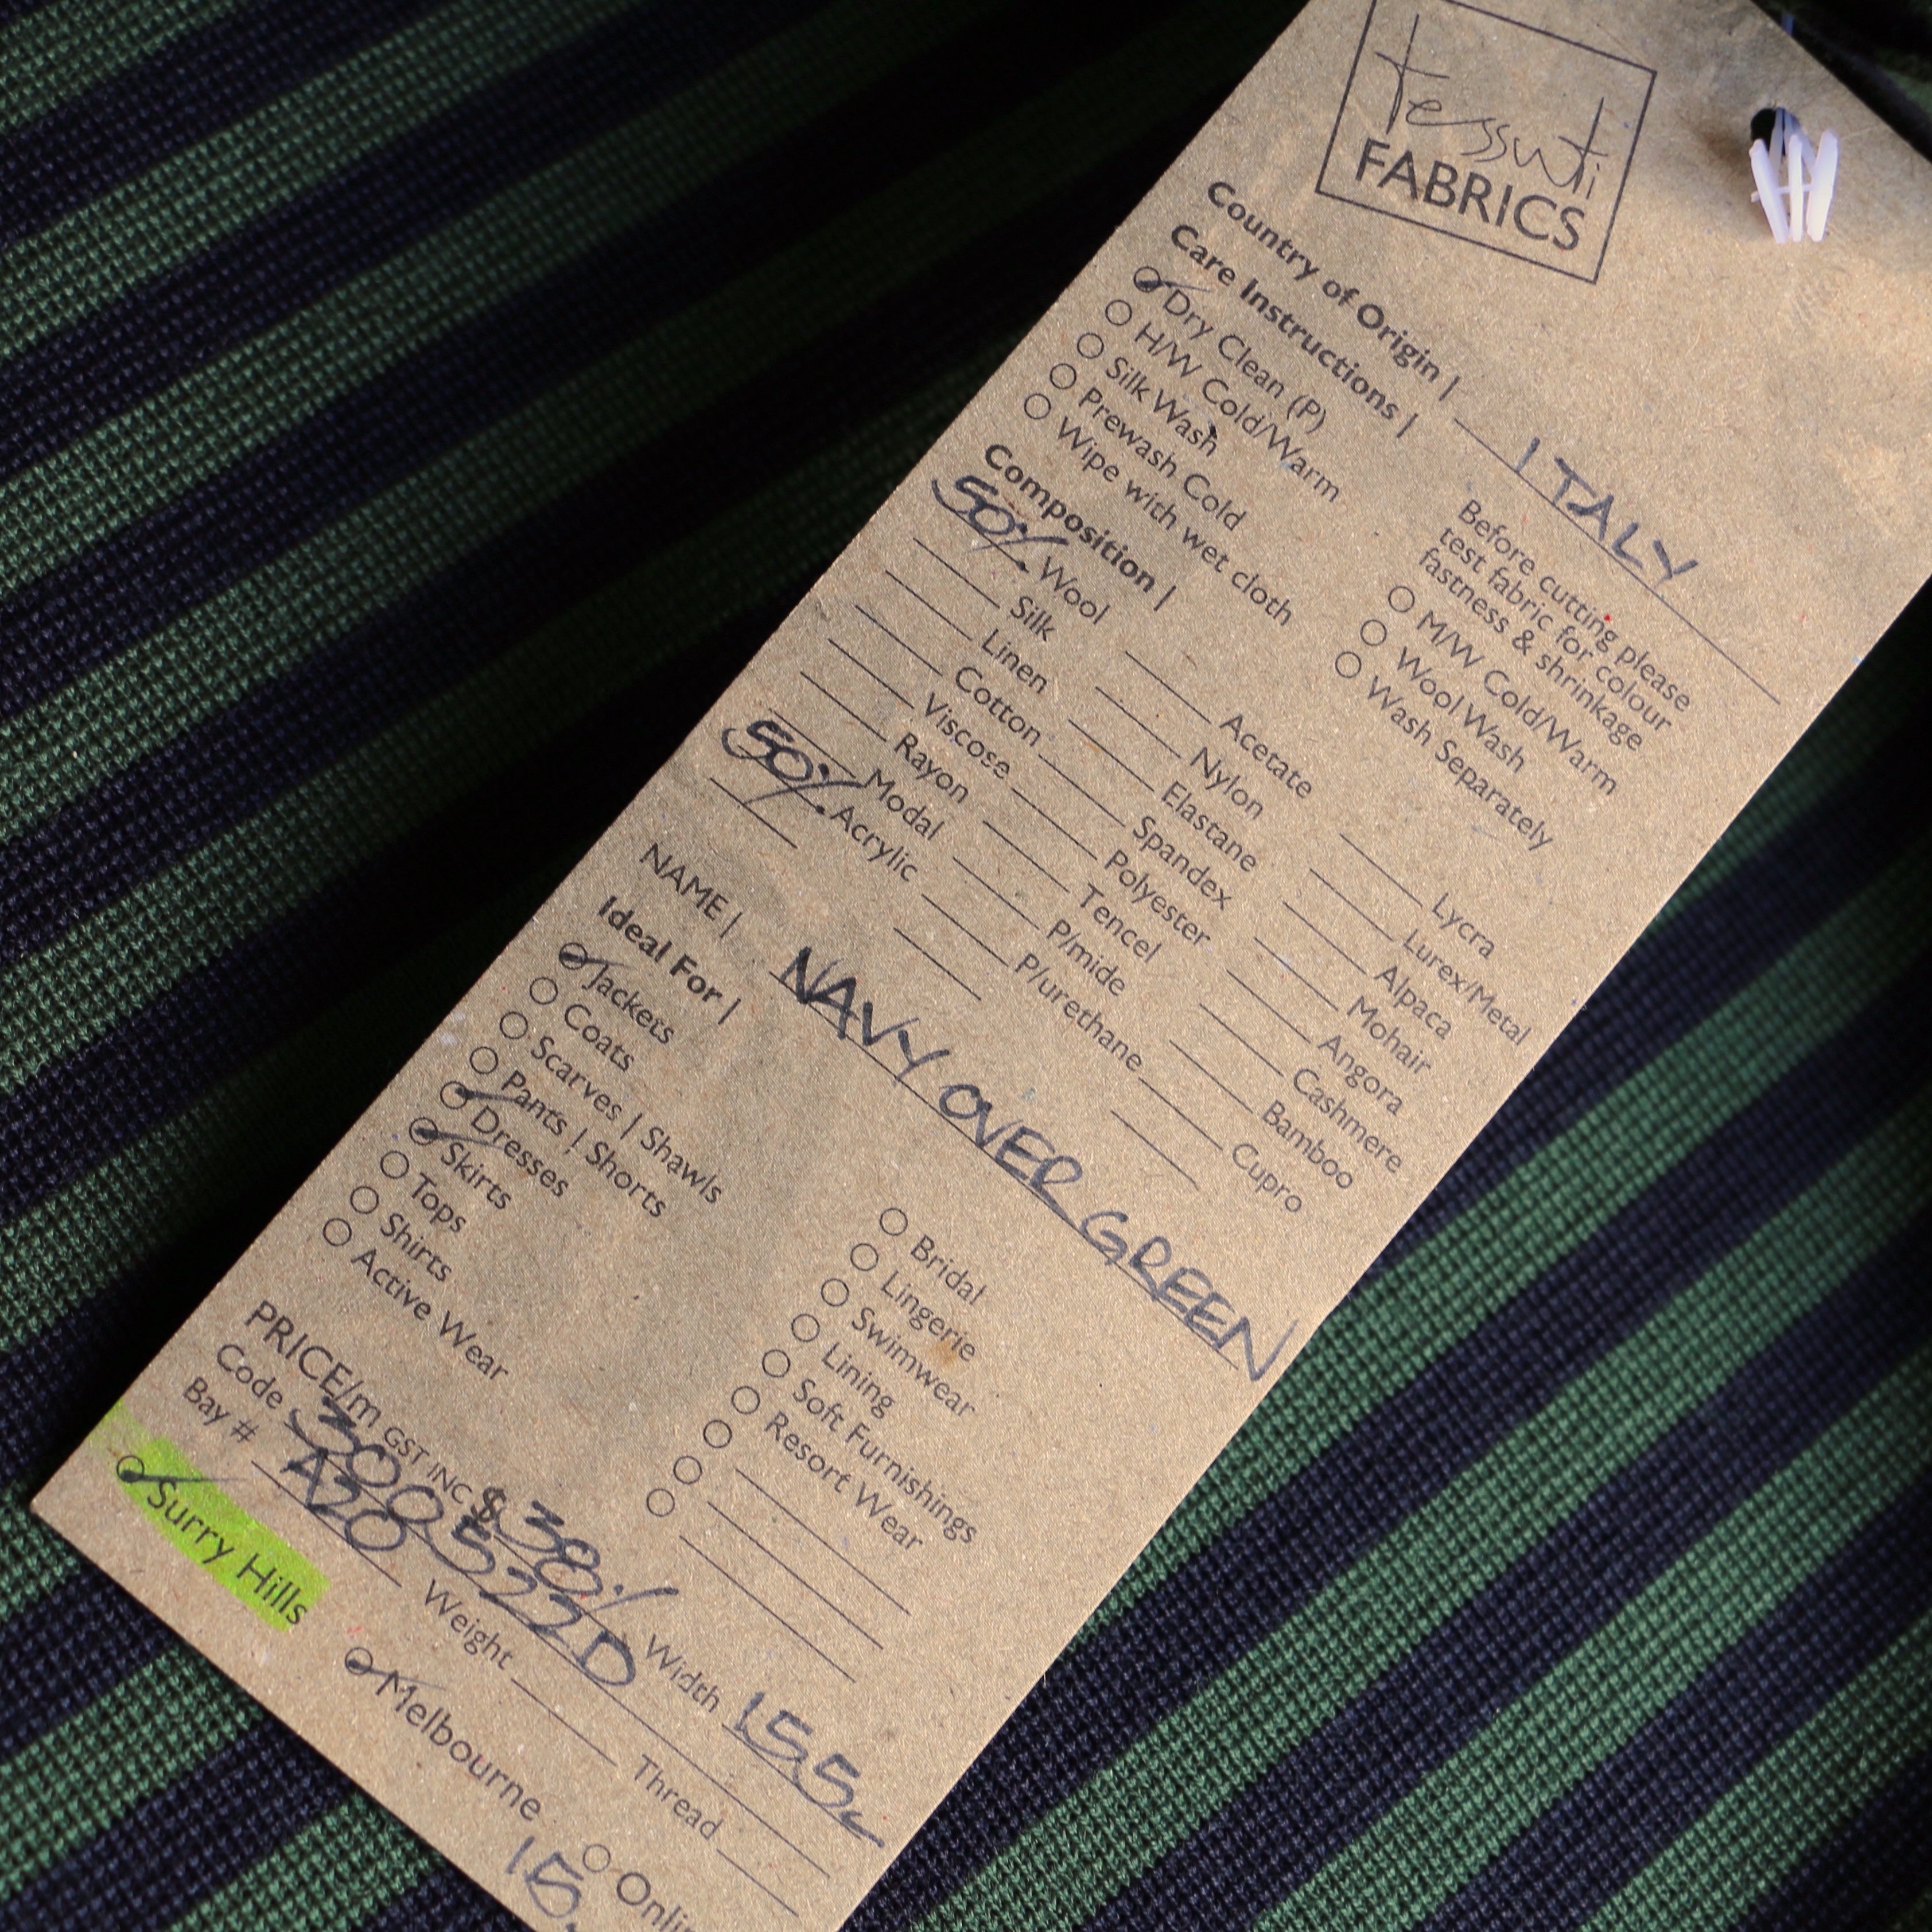 tessuti
FABRICS
Country of Origin | ITALY
Care Instructions |
Dry Clean (P)
H/W Cold/Warm
Silk Wash
Prewash Cold
Wipe with wet cloth
Before cutting please
test fabric for colour
fastness & shrinkage
M/W Cold/Warm
Wool Wash
Wash Separately
Composition |
50% Wool
Silk
Linen
Cotton
Viscose
Rayon
Modal
50% Acrylic
Acetate
Nylon
Elastane
Spandex
Polyester
Tencel
P/mide
P/urethane
Lycra
Lurex/Metal
Alpaca
Mohair
Angora
Cashmere
Bamboo
Cupro
NAME | NAVY OVER GREEN
Ideal For |
Jackets
Coats
Scarves | Shawls
Pants | Shorts
Dresses
Skirts
Tops
Shirts
Active Wear
Bridal
Lingerie
Swimwear
Lining
Soft Furnishings
Resort Wear
PRICE/m GST INC $38 Width 155
Code 300522D
Bay # A20 Weight Thread
Surry Hills Melbourne